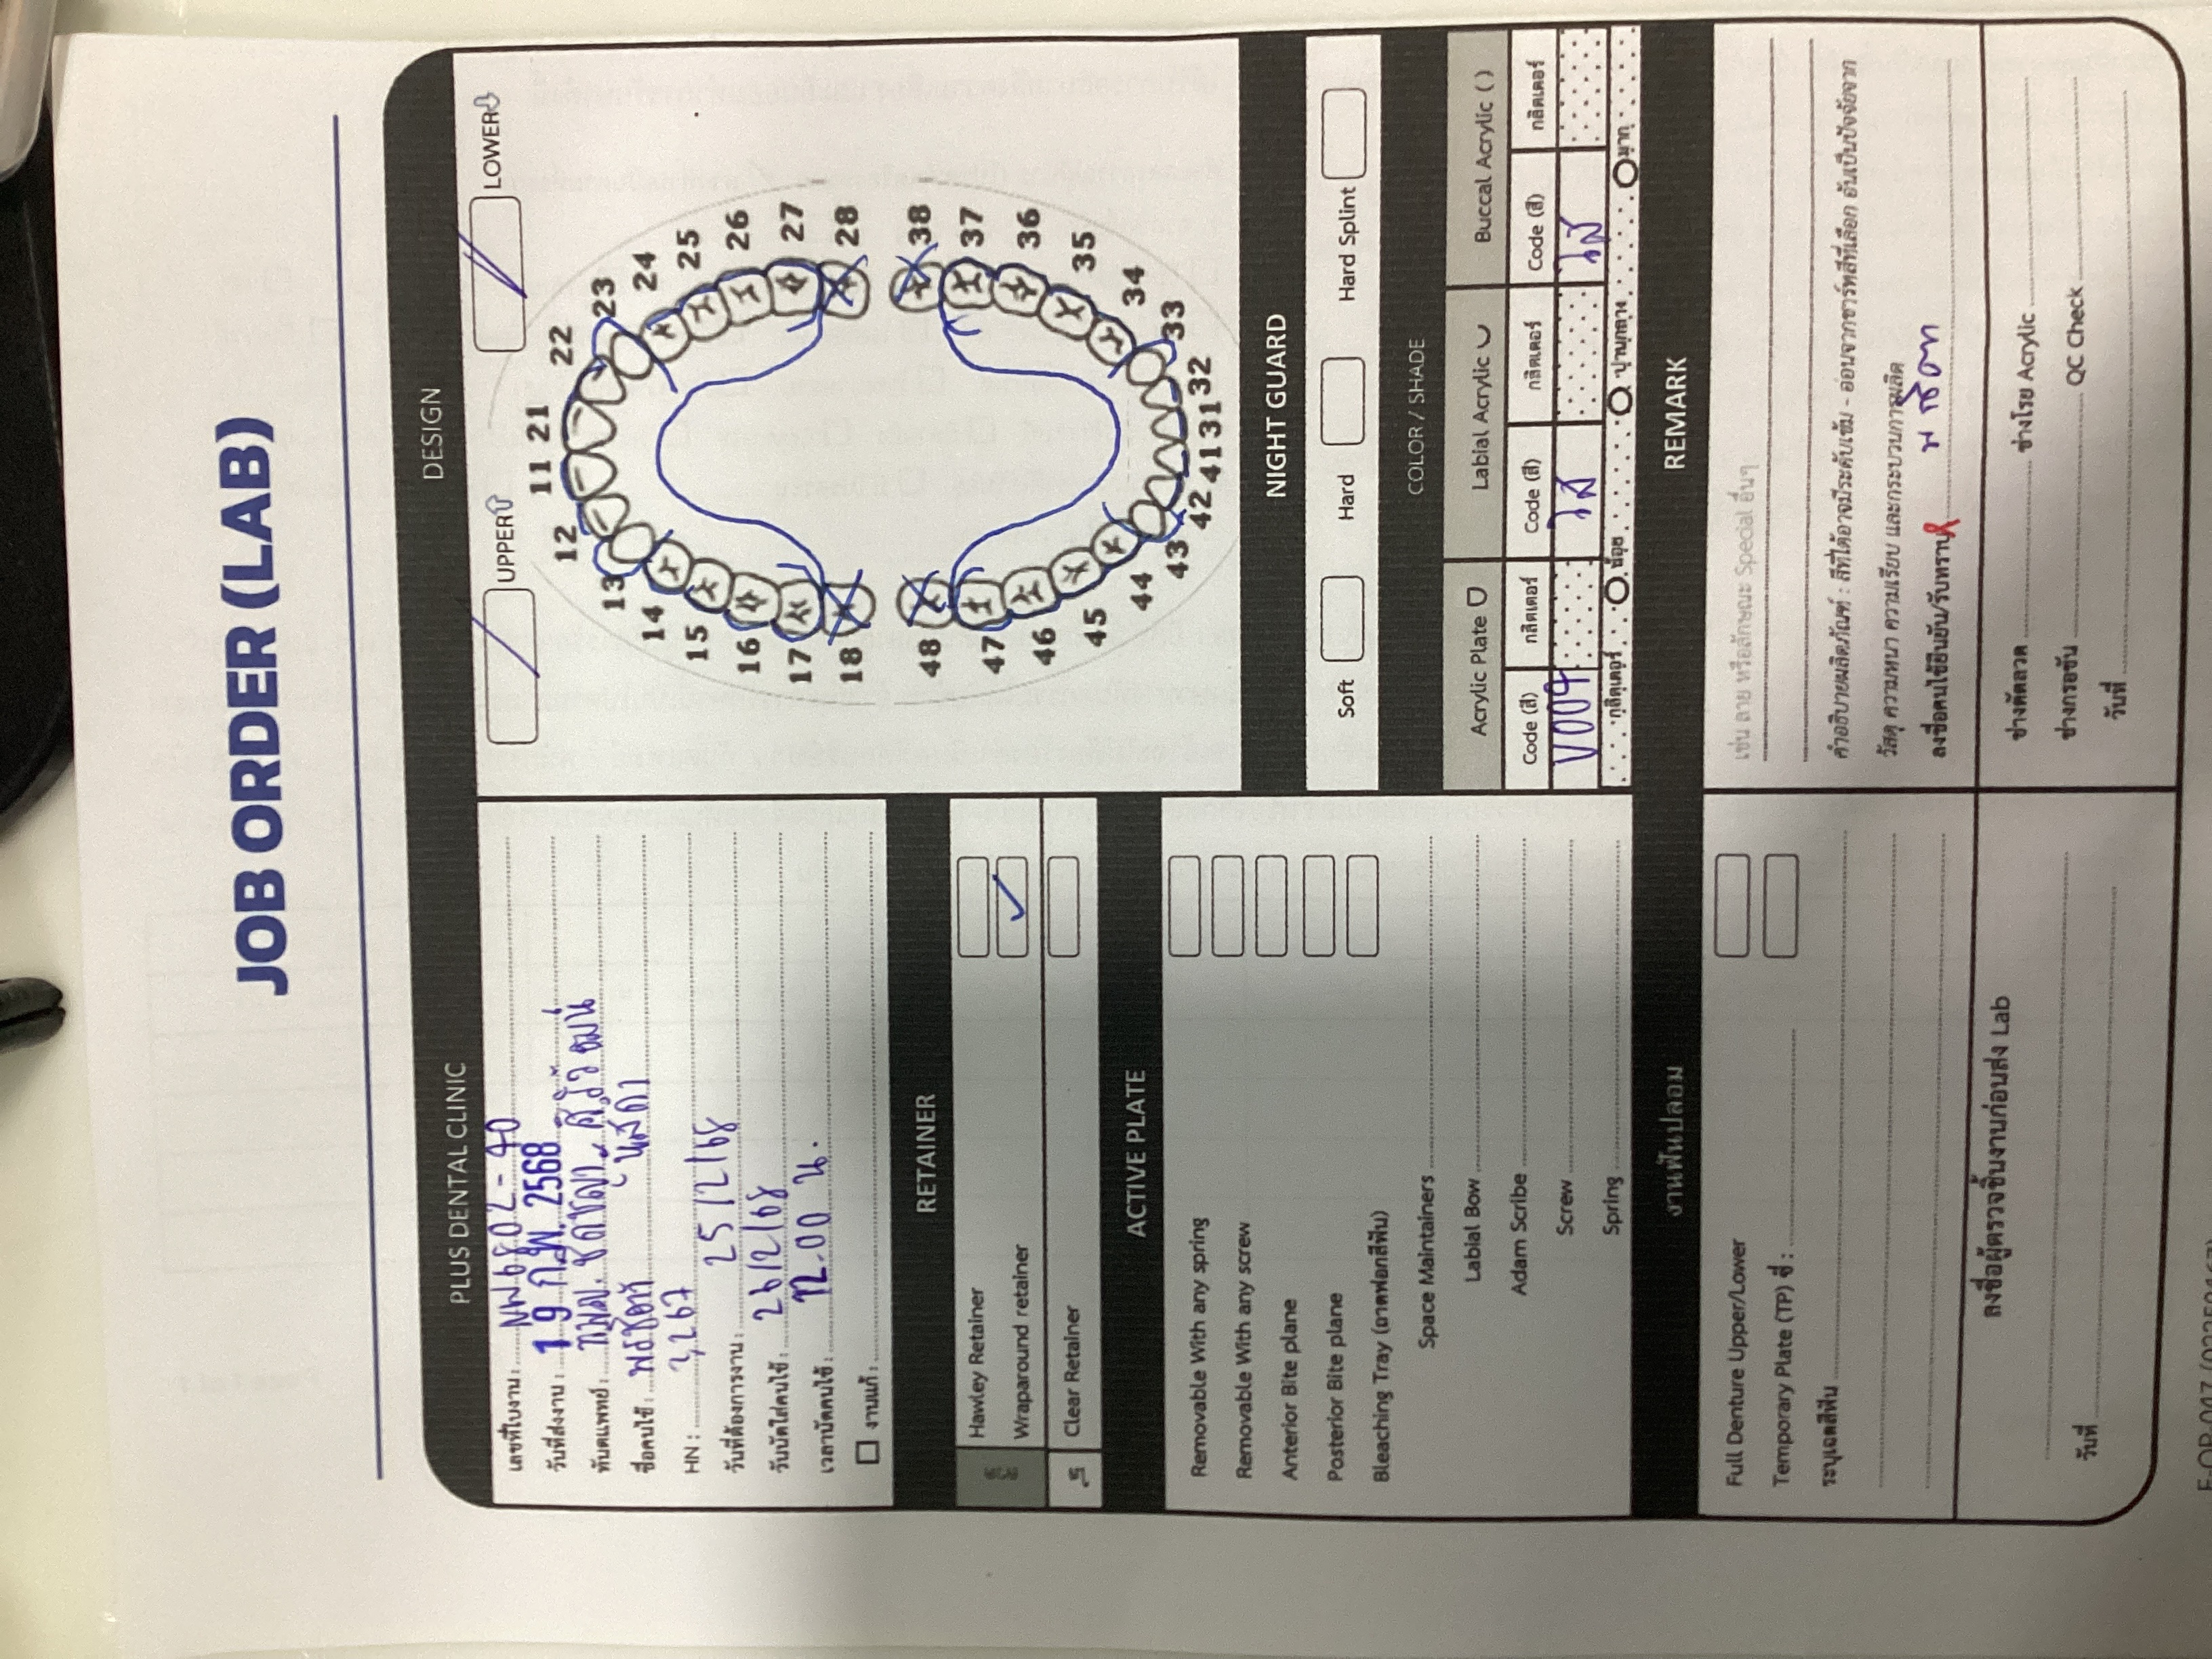 JOB ORDER (LAB)
PLUS DENTAL CLINIC
เลขที่ใบงาน : NW6802-40
วันที่ส่งงาน : 19 ก.พ. 2568
ทันตแพทย์ : ทพญ. ชิดชญา ศิริวัฒน์
ชื่อคนไข้ :
HN : 3267
วันที่ต้องการงาน : 25/2/68
วันนัดใส่คนไข้ : 26/2/68
เวลานัดคนไข้ : 12.00 น.
งานแก้ :
RETAINER
ลวด
Hawley Retainer
Wraparound retainer ✓
ใส
Clear Retainer
ACTIVE PLATE
Removable With any spring
Removable With any screw
Anterior Bite plane
Posterior Bite plane
Bleaching Tray (ถาดฟอกสีฟัน)
Space Maintainers
Labial Bow
Adam Scribe
Screw
Spring
งานฟันปลอม
Full Denture Upper/Lower
Temporary Plate (TP) ซี่ :
ระบุเฉดสีฟัน
ลงชื่อผู้ตรวจชิ้นงานก่อนส่ง Lab
วันที่
DESIGN
UPPER LOWER
11 21
12 22
13 23
14 24
15 25
16 26
17 27
18 28
48 38
47 37
46 36
45 35
44 34
43 33
42 41 31 32
NIGHT GUARD
Soft Hard Hard Splint
COLOR / SHADE
Acrylic Plate Labial Acrylic Buccal Acrylic ( )
Code (สี) กลิตเตอร์ Code (สี) กลิตเตอร์ Code (สี) กลิตเตอร์
V009 ใส ใส
กลิตเตอร์ น้อย ปานกลาง มาก
REMARK
เช่น ลาย หรือลักษณะ Special อื่นๆ
คำอธิบายผลิตภัณฑ์ : สีที่ได้อาจมีระดับเข้ม - อ่อนจากชาร์ทสีที่เลือก อันเป็นปัจจัยจาก
วัสดุ ความหนา ความเรียบ และกระบวนการผลิต
ลงชื่อคนไข้ยืนยัน/รับทราบ
ช่างดัดลวด ช่างโรย Acrylic
ช่างกรอขัน QC Check
วันที่